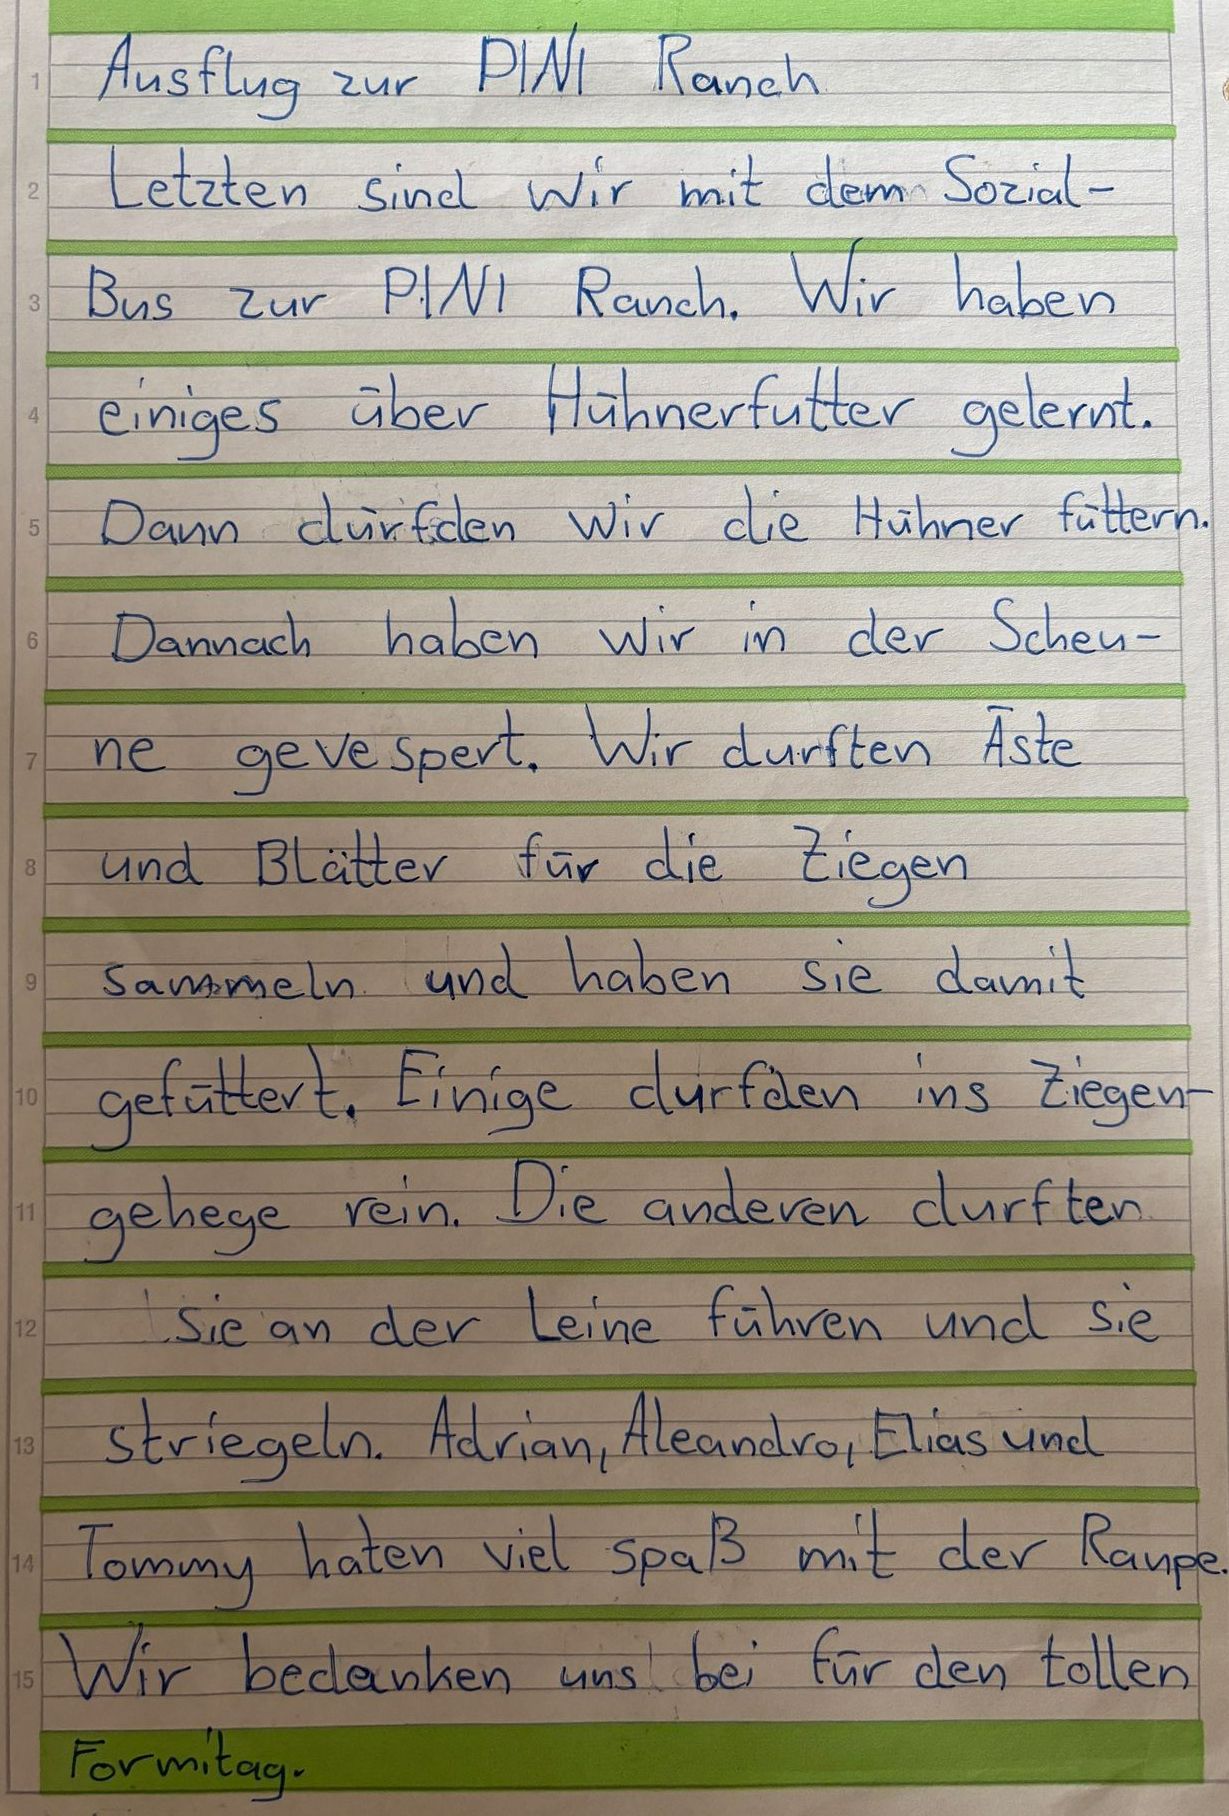 Ausflug zur PINI Ranch
Letzten sind wir mit dem Sozial-
Bus zur PINI Ranch. Wir haben
einiges über Hühnerfutter gelernt.
Dann dürfden wir die Hühner füttern.
Dannach haben wir in der Scheu-
ne gevespert. Wir durften Äste
und Blätter für die Ziegen
sammeln und haben sie damit
gefüttert. Einige durfden ins Ziegen-
gehege rein. Die anderen durften
sie an der Leine führen und sie
striegeln. Adrian, Aleandro, Elias und
Tommy haten viel spaß mit der Raupe.
Wir bedanken uns bei für den tollen
Formitag.
1
2
3
4
5
6
7
8
9
10
11
12
13
14
15